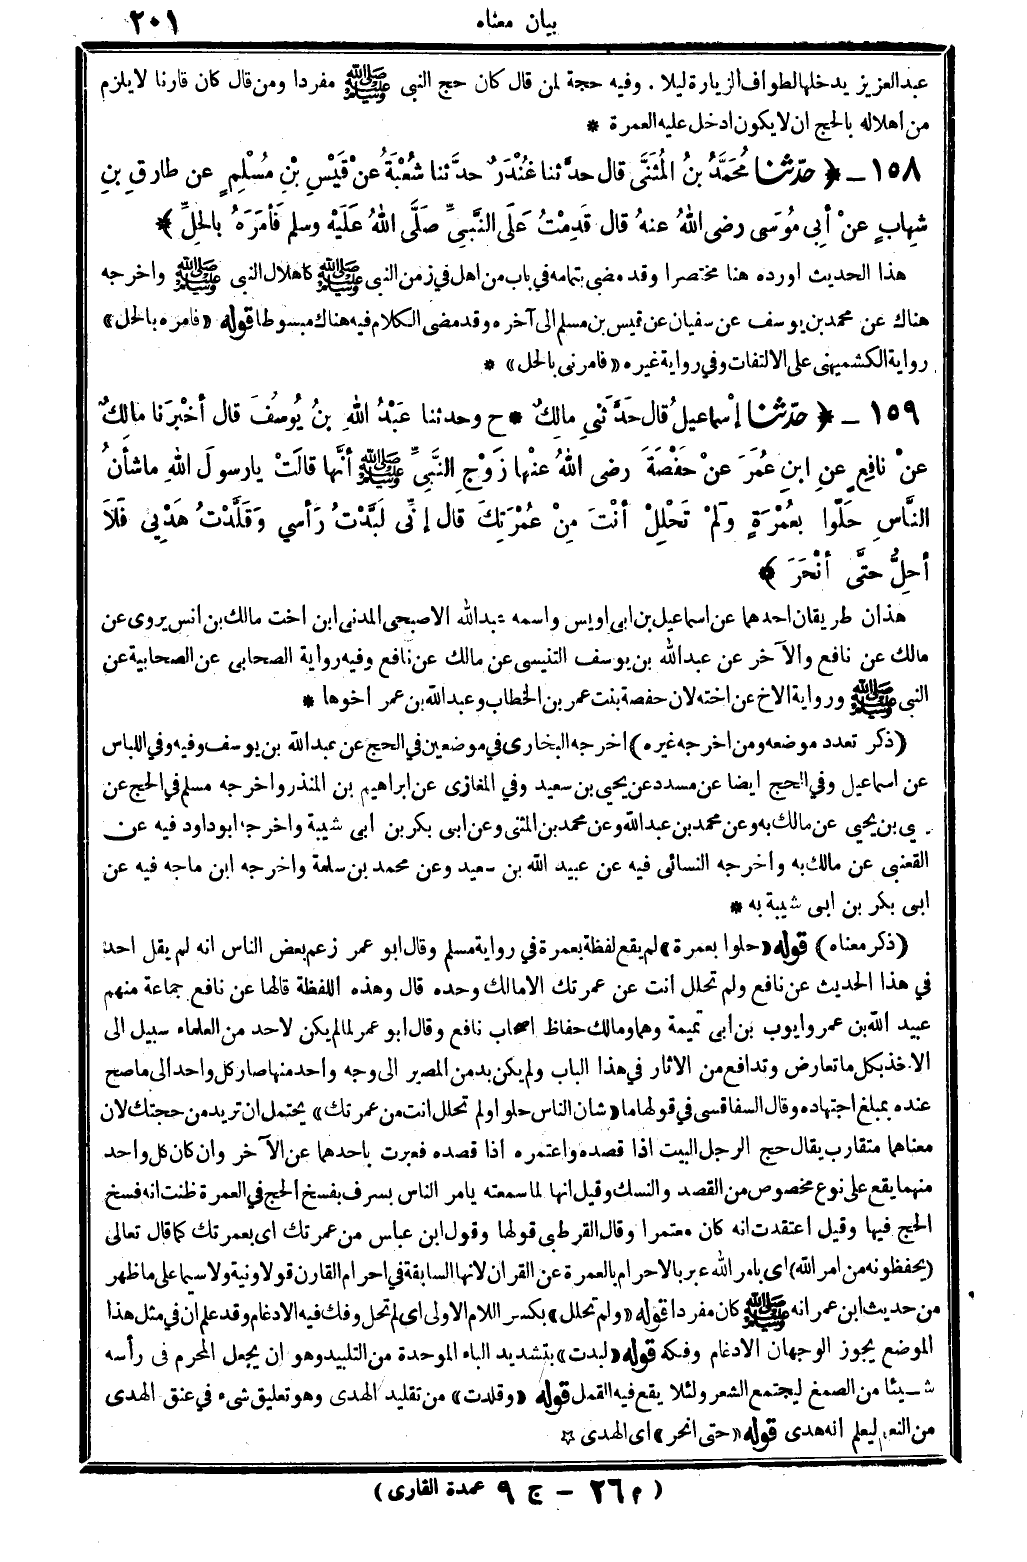 بيان معناه ٢٠١
عبدالعزيز يدخلها لطواف الزيارة ليلا . وفيه حجة لمن قال كان حج النبي ﷺ مفردا ومن قال كان قارنا لا يلزم
من اهلاله بالحج ان لا يكون ادخل عليه العمرة *
١٥٨ ـ ﴿ حدّثنا مُحَمَّدُ بنُ المُثَنَّى قال حدَّثنا غُنْدَرٌ حدَّثنا شُعْبَةُ عنْ قَيْسِ بْنِ مُسْلِمٍ عن طارقِ بنِ
شِهابٍ عنْ أبِي مُوسَى رضى اللهُ عنهُ قال قَدِمْتُ عَلَى النَّبىِّ صَلَّى اللهُ عَلَيْهِ وسلم فَأمَرَهُ بالحِلِّ ﴾
هذا الحديث اورده هنا مختصرا وقد مضى بتمامه في باب من اهل في زمن النبى ﷺ كاهلال النبى ﷺ واخرجه
هناك عن محمد بن يوسف عن سفيان عن قيس بن مسلم الى آخره وقد مضى الكلام فيه هناك مبسوطا قوله «فامره بالحل»
رواية الكشميهنى على الالتفات وفي رواية غيره «فامرنى بالحل» *
١٥٩ ـ ﴿ حدّثنا إسْماعيلُ قال حَدَّثَنى مالِكٌ * ح وحدثنا عَبْدُ اللهِ بنُ يُوسُفَ قال أخْبَرَنا مالِكٌ
عنْ نافِعٍ عنِ ابنِ عُمَرَ عنْ حَفْصَةَ رضى اللهُ عنْها زَوْجِ النَّبىِّ ﷺ أنَّها قالَتْ يارسولَ اللهِ ماشَأنُ
النَّاسِ حَلّوا بعُمْرَةٍ ولَمْ تَحْلِلْ أنْتَ مِنْ عُمْرَتِكَ قال إنِّى لَبَّدْتُ رَأسي وقَلَّدْتُ هَدْيِى فَلاَ
أحِلُّ حتَّى أنْحَرَ ﴾
هذان طريقان احدهما عن اسماعيل بن ابى اويس واسمه عبدالله الاصبحى المدنى ابن اخت مالك بن انس يروى عن
مالك عن نافع والآخر عن عبدالله بن يوسف التنيسى عن مالك عن نافع وفيه رواية الصحابى عن الصحابية عن
النبى ﷺ ورواية الاخ عن اخته لان حفصة بنت عمر بن الخطاب وعبدالله بن عمر اخوها *
(ذكر تعدد موضعه ومن اخرجه غيره) اخرجه البخارى في موضعين في الحج عن عبدالله بن يوسف وفيه وفي اللباس
عن اسماعيل وفي الحج ايضا عن مسدد عن يحيى بن سعيد وفي المغازى عن ابراهيم بن المنذر واخرجه مسلم في الحج عن
ى بن يحيى عن مالك به وعن محمد بن عبدالله وعن محمد بن المثنى وعن ابى بكر بن ابى شيبة واخرجه ابو داود فيه عن
القعنبى عن مالك به واخرجه النسائى فيه عن عبيد الله بن سعيد وعن محمد بن سلمة واخرجه ابن ماجه فيه عن
ابى بكر بن ابى شيبة به *
(ذكر معناه) قوله «حلوا بعمرة» لم يقع لفظة بعمرة في رواية مسلم وقال ابو عمر زعم بعض الناس انه لم يقل احد
في هذا الحديث عن نافع ولم تحلل انت عن عمرتك الا مالك وحده قال وهذه اللفظة قالها عن نافع جماعة منهم
عبيد الله بن عمر وايوب بن ابى تميمة وهما ومالك حفاظ اصحاب نافع وقال ابو عمر لما لم يكن لاحد من العلماء سبيل الى
الاخذ بكل ما تعارض وتدافع من الآثار في هذا الباب ولم يكن بد من المصير الى وجه واحد منها صار كل واحد الى ما صح
عنده بمبلغ اجتهاده وقال السفاقسى في قولها ما «شان الناس حلوا ولم تحلل انت من عمرتك» يحتمل ان تريد من حجتك لان
معناهما متقارب يقال حج الرجل البيت اذا قصده واعتمره اذا قصده فعبرت باحدهما عن الآخر وان كان كل واحد
منهما يقع على نوع مخصوص من القصد والنسك وقيل انها لما سمعته يامر الناس بسرف بفسخ الحج في العمرة ظنت انه فسخ
الحج فيها وقيل اعتقدت انه كان معتمرا وقال القرطبى قولها وقول ابن عباس من عمرتك اى بعمرتك كما قال تعالى
(يحفظونه من امر الله) اى بامر الله عبر بالاحرام بالعمرة عن القران لانها السابقة في احرام القارن قولا ونية ولا سيما على ما ظهر
من حديث ابن عمر انه ﷺ كان مفردا قوله «ولم تحلل» بكسر اللام الاولى اى لم تحل وفك فيه الادغام وقد علم ان في مثل هذا
الموضع يجوز الوجهان الادغام وفكه قوله «لبدت» بتشديد الباء الموحدة من التلبيد وهو ان يجعل المحرم فى رأسه
شيئا من الصمغ ليجتمع الشعر ولئلا يقع فيه القمل قوله «وقلدت» من تقليد الهدى وهو تعليق شىء في عنق الهدى
من النعم ليعلم انه هدى قوله «حتى انحر» اى الهدى ☆
(م ٢٦ ــ ج ٩ عمدة القارى)